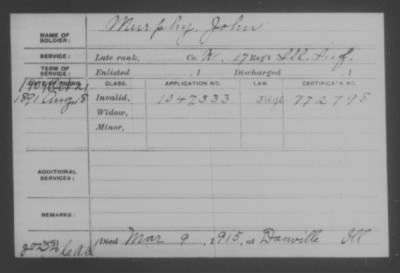 NAME OF SOLDIER: Murphy, John
SERVICE: Late rank, Co. K, 17 Reg't Ill. Inf.
TERM OF SERVICE: Enlisted , 1 Discharged , 1
DATE OF FILING. CLASS. APPLICATION NO. LAW. CERTIFICATE NO.
1891 Aug 8 Invalid, 1047333 772798
Widow,
Minor,
ADDITIONAL SERVICES:
REMARKS:
Died Mar 9, 1915, at Danville Ill